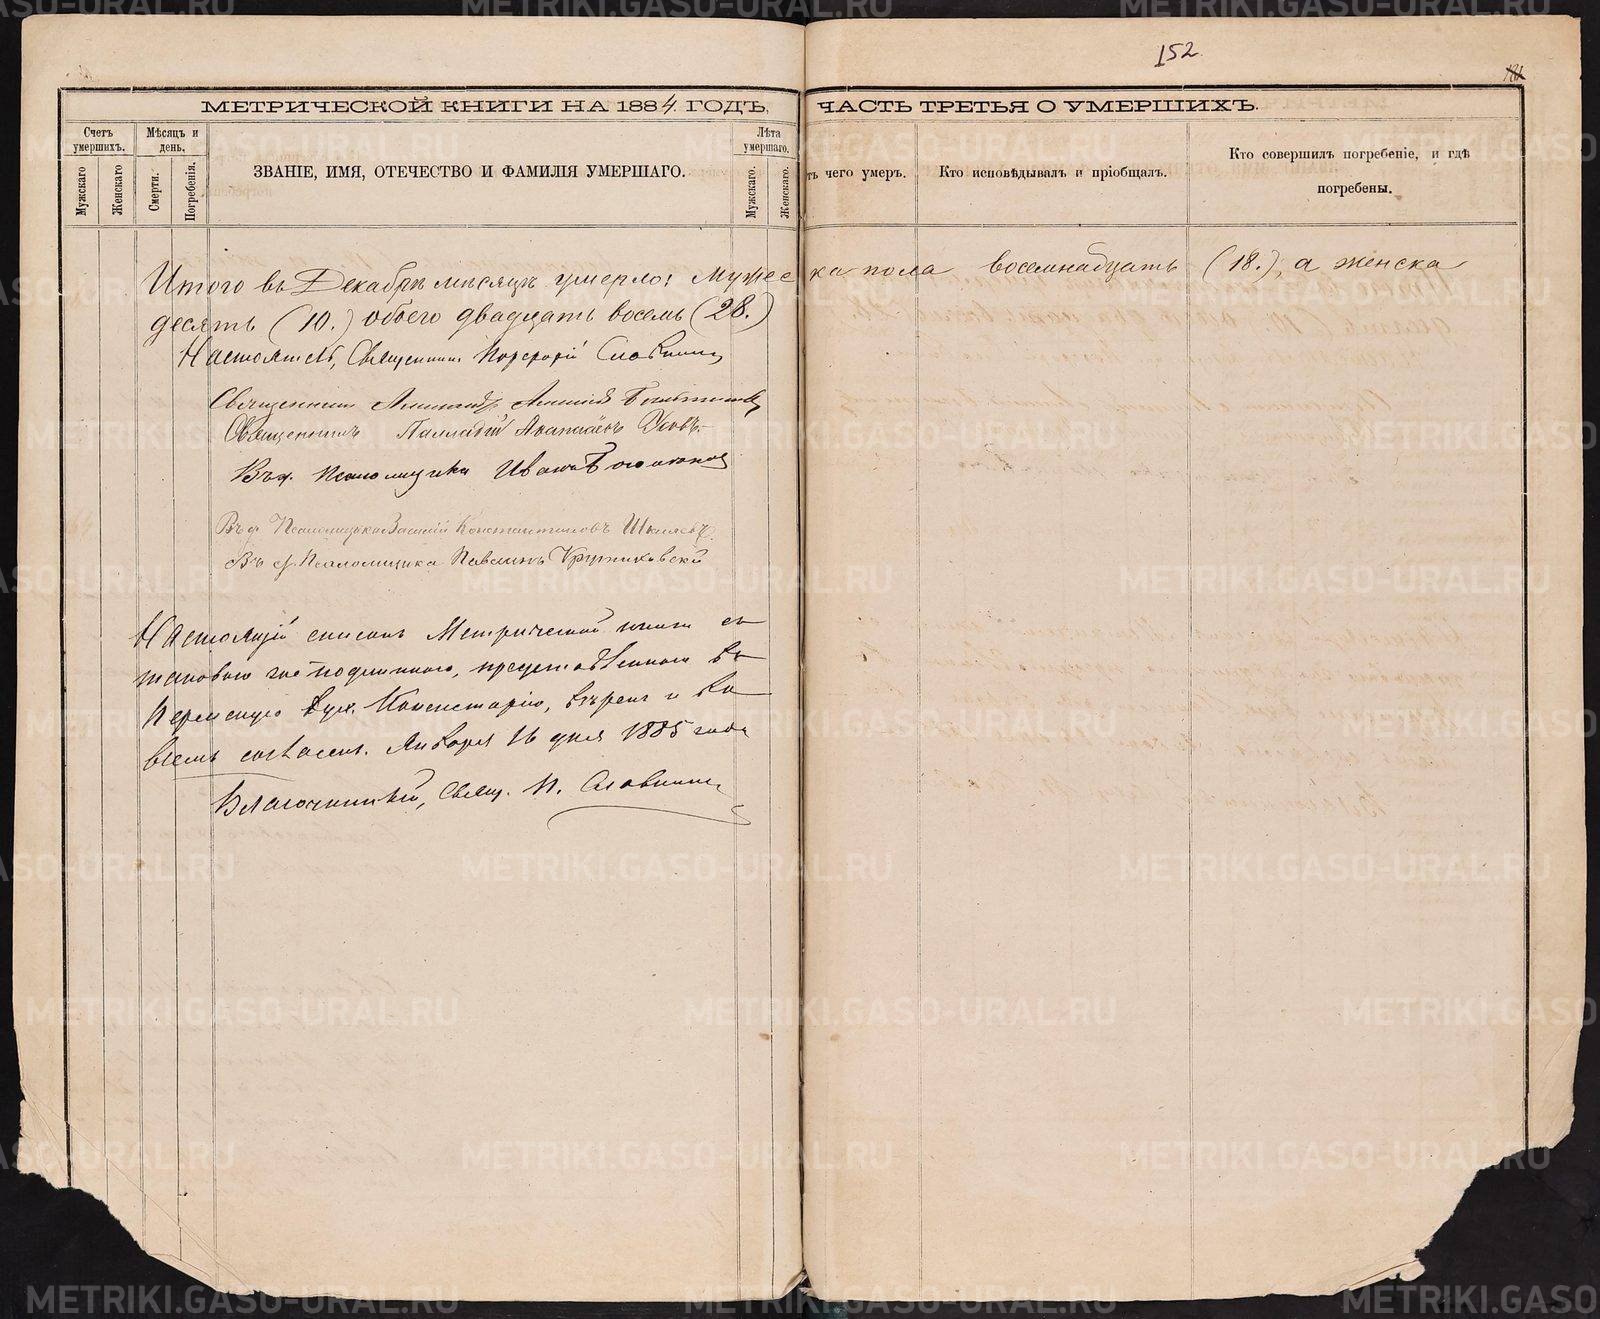 152
МЕТРИЧЕСКОЙ КНИГИ НА 1884 ГОДЪ, ЧАСТЬ ТРЕТЬЯ О УМЕРШИХЪ.
Счетъ умершихъ.
Мужскаго
Женскаго
Мѣсяцъ и день.
Смерти.
Погребенія.
ЗВАНІЕ, ИМЯ, ОТЕЧЕСТВО И ФАМИЛІЯ УМЕРШАГО.
Лѣта умершаго.
Мужскаго.
Женскаго.
ть чего умеръ.
Кто исповѣдывалъ и пріобщалъ.
Кто совершилъ погребеніе, и гдѣ
погребены.
Итого въ Декабрѣ мѣсяцѣ умерло: Мужеска пола восемнадцать (18.), а женска
десять (10.) обоего двадцать восемь (28.)
Настоятель, Священник Порфирій Словцовъ
Священникъ Александр
Священникъ Палладій Аѳанасіевъ
Въ д. Псаломщика Иванъ
Въ д. Псаломщика Василій Константиновъ Шкляевъ.
Въ д. Псаломщика Павлинъ Крутиховскій
Настоящій списокъ Метрической книги съ
таковою же подлинною, представленною въ
Пермскую Дух. Консисторію, вѣренъ и во
всемъ согласенъ. Января 16 дня 1885 года
Благочинный, Свящ. П. Словцовъ
METRIKI.GASO-URAL.RU